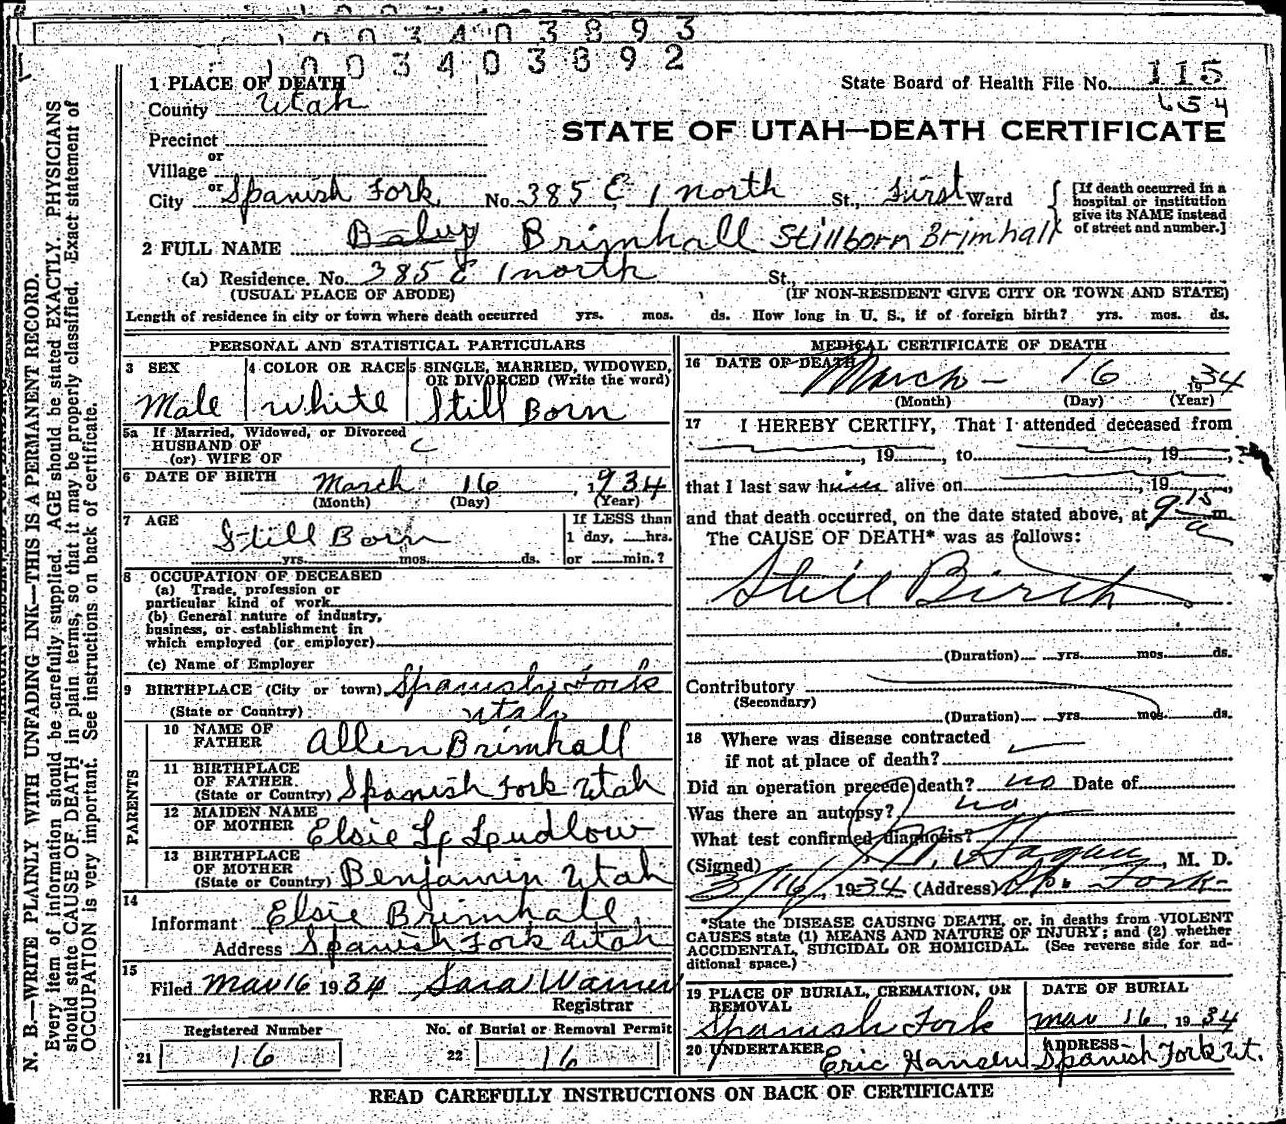 1003403893
1003403892
1 PLACE OF DEATH
State Board of Health File No. 115
654
County Utah
STATE OF UTAH—DEATH CERTIFICATE
Precinct
or
Village
or
City Spanish Fork, No. 385 E 1 north St., First Ward
[If death occurred in a hospital or institution give its NAME instead of street and number.]
2 FULL NAME Baby Brimhall Stillborn Brimhall
(a) Residence. No. 385 E 1 north St.
(USUAL PLACE OF ABODE) (IF NON-RESIDENT GIVE CITY OR TOWN AND STATE)
Length of residence in city or town where death occurred yrs. mos. ds. How long in U. S., if of foreign birth? yrs. mos. ds.
PERSONAL AND STATISTICAL PARTICULARS
3 SEX 4 COLOR OR RACE 5 SINGLE, MARRIED, WIDOWED,
OR DIVORCED (Write the word)
Male White Still Born
5a If Married, Widowed, or Divorced
HUSBAND OF
(or) WIFE OF
6 DATE OF BIRTH March 16, 1934
(Month) (Day) (Year)
7 AGE Still Born
If LESS than
1 day, hrs.
yrs. mos. ds. or min.?
8 OCCUPATION OF DECEASED
(a) Trade, profession or
particular kind of work
(b) General nature of industry,
business, or establishment in
which employed (or employer)
(c) Name of Employer
9 BIRTHPLACE (City or town) Spanish Fork
(State or Country) Utah
PARENTS
10 NAME OF
FATHER Allen Brimhall
11 BIRTHPLACE
OF FATHER
(State or Country) Spanish Fork Utah
12 MAIDEN NAME
OF MOTHER Elsie L Ludlow
13 BIRTHPLACE
OF MOTHER
(State or Country) Benjamin Utah
14
Informant Elsie Brimhall
Address Spanish Fork Utah
15
Filed Mar 16 1934 Sara Warner
Registrar
Registered Number No. of Burial or Removal Permit
21 16 22 16
MEDICAL CERTIFICATE OF DEATH
16 DATE OF DEATH March - 16 1934
(Month) (Day) (Year)
17 I HEREBY CERTIFY, That I attended deceased from
, 19 , to , 19 ,
that I last saw him alive on , 19 ,
and that death occurred, on the date stated above, at 9 15 a m.
The CAUSE OF DEATH* was as follows:
Still Birth
(Duration) yrs. mos. ds.
Contributory
(Secondary)
(Duration) yrs. mos. ds.
18 Where was disease contracted
if not at place of death?
Did an operation precede death? no Date of
Was there an autopsy? no
What test confirmed diagnosis?
(Signed) , M. D.
3/16/, 1934 (Address) Sp. Fork
*State the DISEASE CAUSING DEATH, or, in deaths from VIOLENT
CAUSES state (1) MEANS AND NATURE OF INJURY; and (2) whether
ACCIDENTAL, SUICIDAL OR HOMICIDAL. (See reverse side for ad-
ditional space.)
19 PLACE OF BURIAL, CREMATION, OR
REMOVAL
Spanish Fork
DATE OF BURIAL
Mar 16, 1934
20 UNDERTAKER
Eric Hansen
ADDRESS
Spanish Fork Ut.
READ CAREFULLY INSTRUCTIONS ON BACK OF CERTIFICATE
N. B.—WRITE PLAINLY WITH UNFADING INK—THIS IS A PERMANENT RECORD.
Every item of information should be carefully supplied. AGE should be stated EXACTLY. PHYSICIANS
should state CAUSE OF DEATH in plain terms, so that it may be properly classified. Exact statement of
OCCUPATION is very important. See instructions on back of certificate.